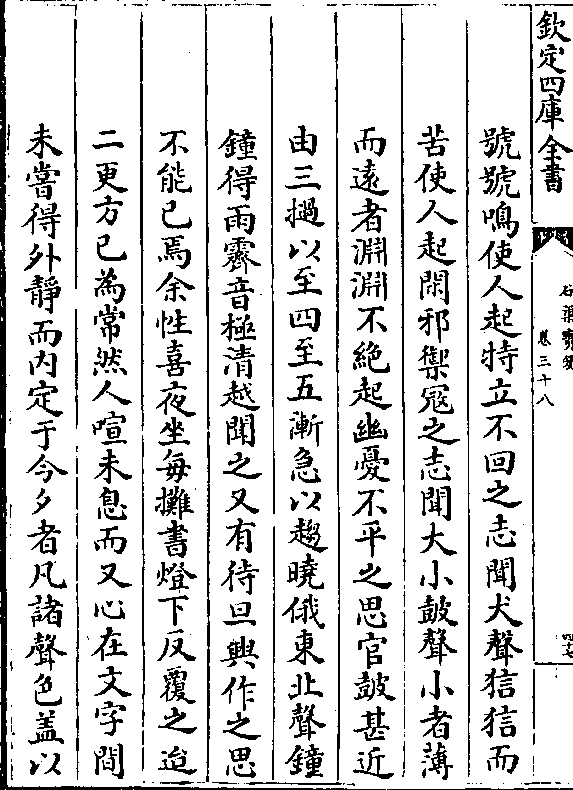 欽定四庫全書
石渠寳笈
卷三十八
號號鳴使人起特立不回之志聞犬聲狺狺而
苦使人起閑邪禦冦之志聞大小皷聲小者薄
而遠者淵淵不絶起幽憂不平之思官皷甚近
由三撾以至四至五漸急以趨曉俄東北聲鐘
鐘得雨霽音極清越聞之又有待旦興作之思
不能已焉余性喜夜坐每攤書燈下反覆之迨
二更方已為常然人喧未息而又心在文字間
未嘗得外靜而内定于今夕者凡諸聲色盖以